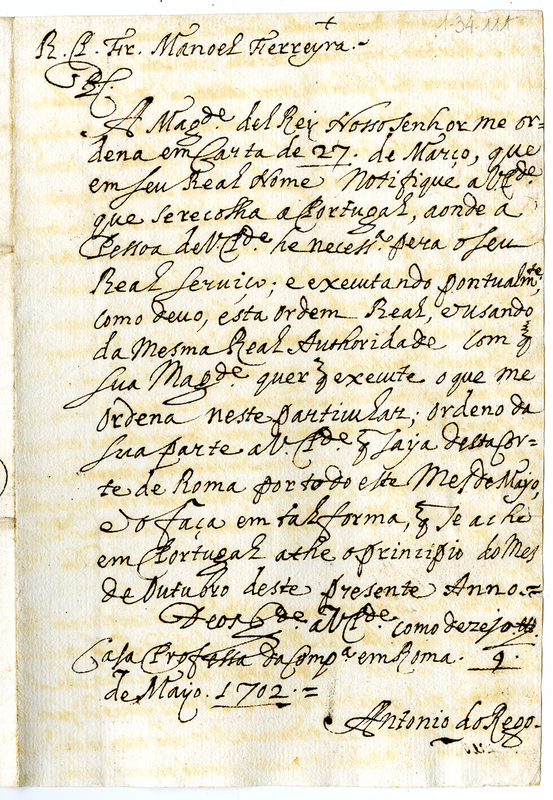 1-34-111
+
R. P. Fr. Manoel Ferreyra.~
PC.
A Magde. del Rey Nosso Senhor me or-
dena em Carta de 27. de Março, que
em seu Real Nome Notifique a VPde.
que se recolha a Portugal, aonde a
Pessoa de VPde. he necessa. pera o seu
Real serviço; e executando pontualmte,
como devo, esta Ordem Real, e usando
da Mesma Real Authoridade com q̃
sua Magde. quer q̃ execute o que me
Ordena neste particular; ordeno da
sua parte a V. Pde. q̃ saya desta Cor=
te de Roma por todo este Mes de Mayo,
e o faça em tal forma, q̃ se ache
em Portugal athe o principio do Mes
de Outubro deste presente Anno.=
Deos gde. a VPde. como dezejo.
Casa Professa da Compa. em Roma. 9.
de Mayo. 1702.=
Antonio do Rego.